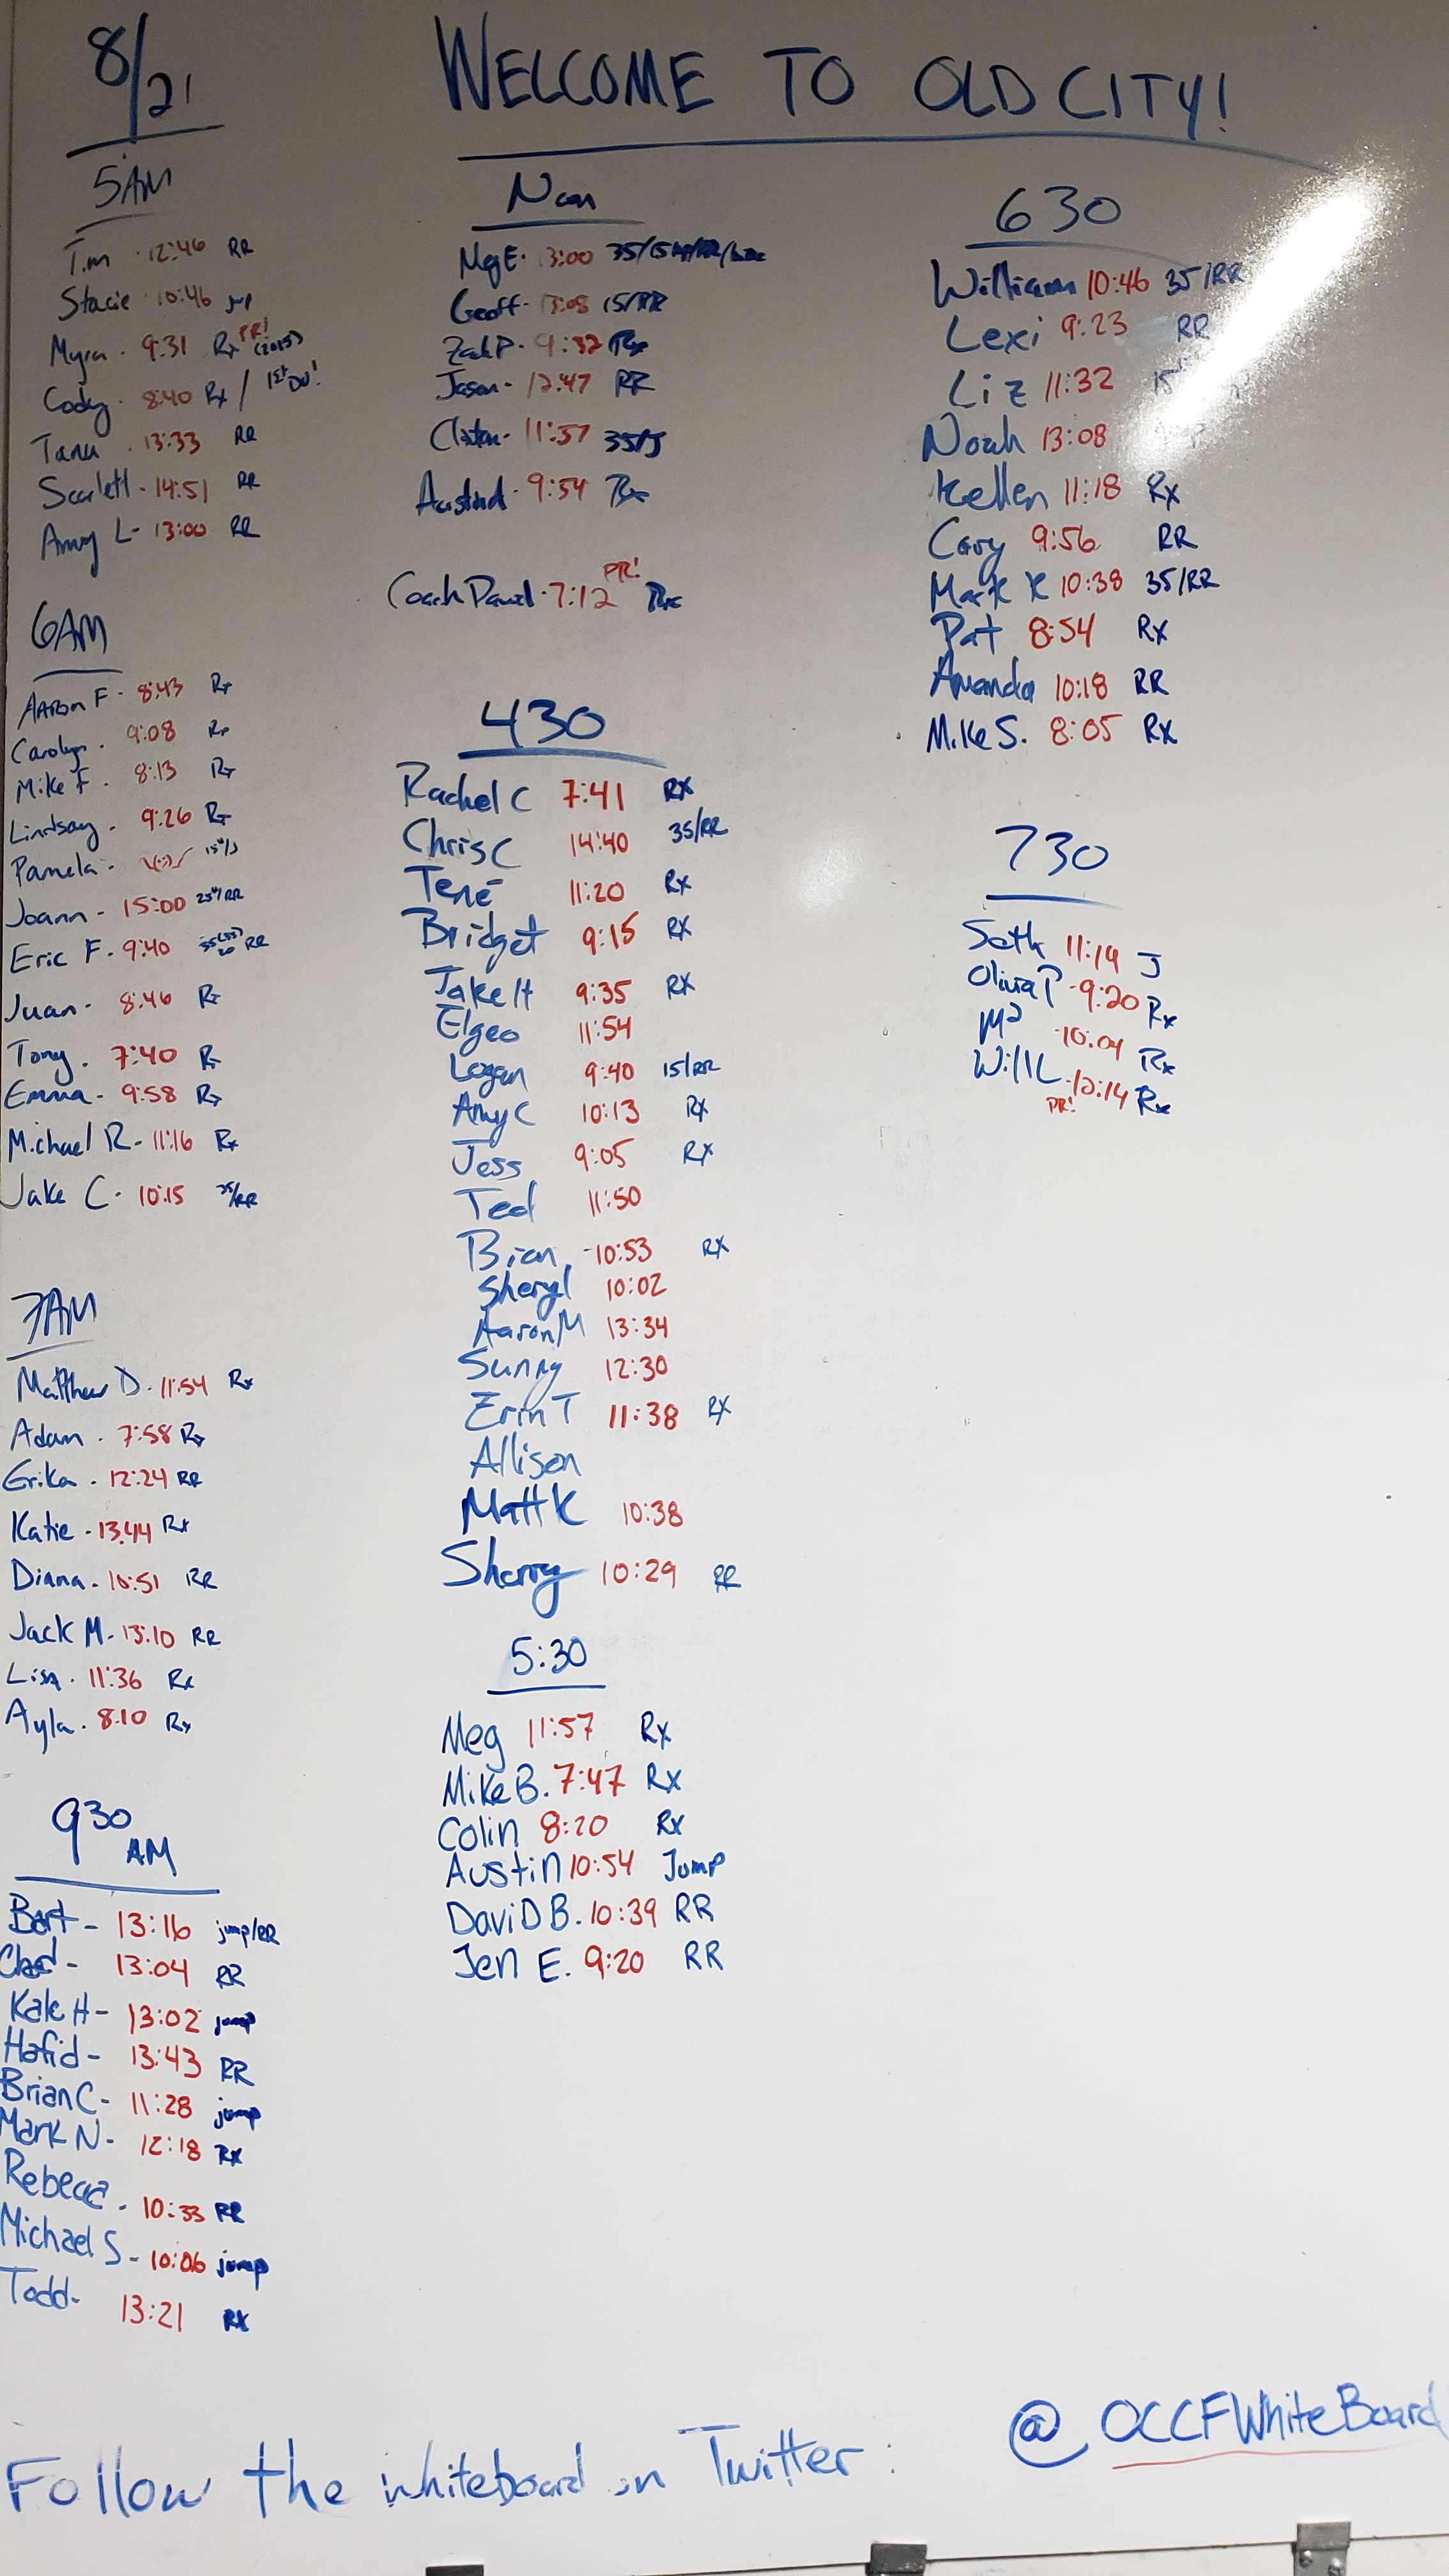 8/21
WELCOME TO OLD CITY!
5AM
Tim · 12:46 RR
Stacie · 10:46 jmp
Myra · 9:31 Rx PR! (2015)
Cody · 8:40 Rx / 1st DU!
Tana · 13:33 RR
Scarlett · 14:51 RR
Amy L - 13:00 RR
6AM
Aaron F - 8:43 Rx
Carolyn · 9:08 Rx
Mike F · 8:13 Rx
Lindsay · 9:26 Rx
Pamela · 15#/J
Joann - 15:00 25#/RR
Eric F · 9:40 RR
Juan - 8:46 Rx
Tony · 7:40 Rx
Emma - 9:58 Rx
Michael R - 11:16 Rx
Jake C · 10:15 35/RR
7AM
Matthew D · 11:54 Rx
Adam · 7:58 Rx
Erika · 12:24 RR
Katie - 13:44 Rx
Diana - 10:51 RR
Jack M - 13:10 RR
Lisa · 11:36 Rx
Ayla · 8:10 Rx
930 AM
Bart - 13:16 jump/RR
Chad - 13:04 RR
Kale H - 13:02 jump
Hafid - 13:43 RR
Brian C - 11:28 jump
Mark N - 12:18 Rx
Rebecca - 10:33 RR
Michael S - 10:06 jump
Todd - 13:21 RX
Noon
Meg E · 13:00
Geoff · 13:05 15/RR
Zach P · 9:32 Rx
Jason - 12:47 RR
Clinton - 11:57 35/J
Austin · 9:54 Rx
Coach David · 7:12 PR! Rx
430
Rachel C 7:41 RX
Chris C 14:40 35/RR
Tené 11:20 RX
Bridget 9:15 RX
Jake H 9:35 RX
Elgeo 11:54
Logan 9:40 15/RR
Amy C 10:13 RX
Jess 9:05 RX
Ted 11:50
Brian - 10:53 RX
Sheryl 10:02
Aaron M 13:34
Sunny 12:30
Erin T 11:38 RX
Allison
Matt K 10:38
Sherry 10:29 RR
5:30
Meg 11:57 Rx
Mike B. 7:47 Rx
Colin 8:20 Rx
Austin 10:54 Jump
DaviD B. 10:39 RR
Jen E. 9:20 RR
630
William 10:46 35/RR
Lexi 9:23 RR
Liz 11:32 15
Noah 13:08
Kellen 11:18 Rx
Cary 9:56 RR
Mark K 10:38 35/RR
Pat 8:54 Rx
Amanda 10:18 RR
Mike S. 8:05 Rx
730
Seth 11:14 J
Olivia P - 9:20 Rx
M² - 10:04 Rx
Will L - 12:14 Rx
PR!
Follow the whiteboard on Twitter: @OCCFWhiteBoard